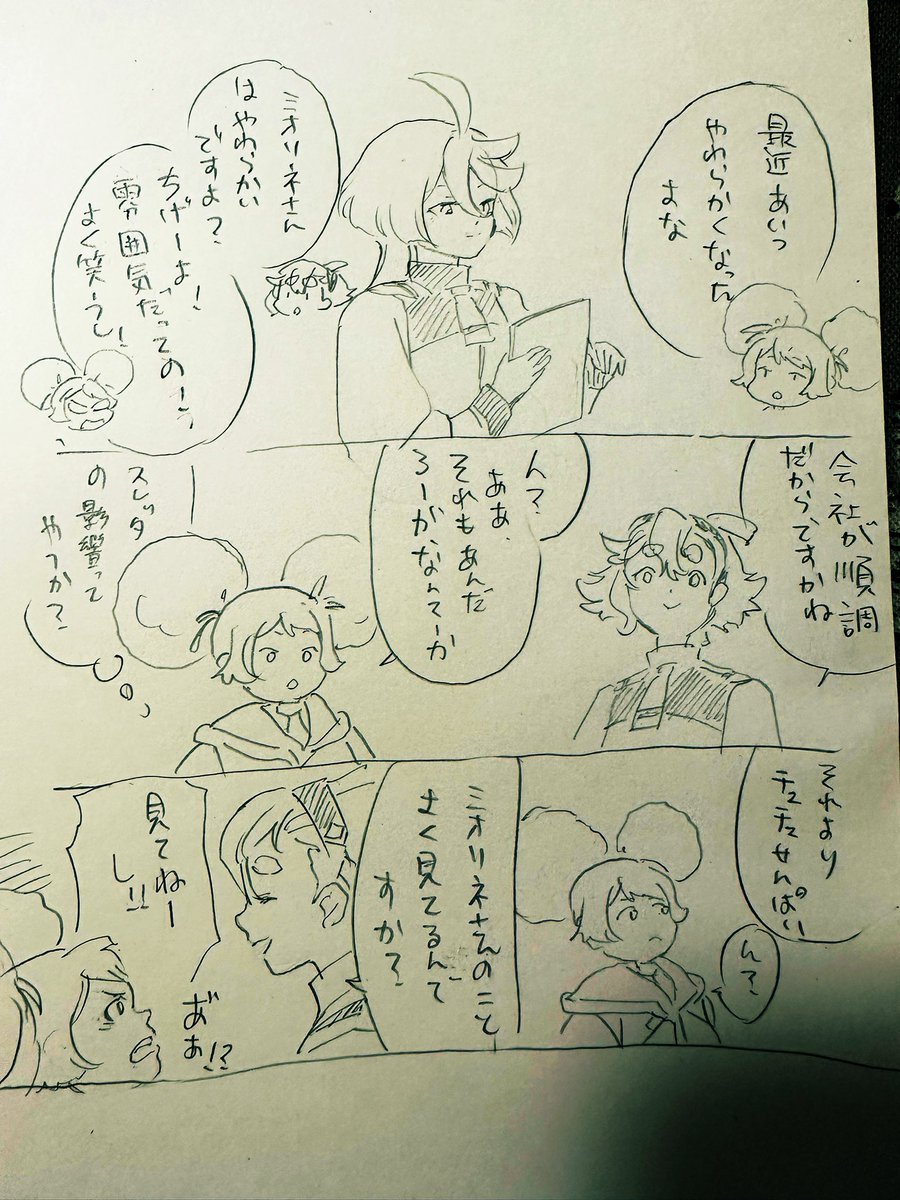 最近あいつ
やわらかくなった
よな
ミオリネさん
はやわらかい
ですよ？
ちげーよ！
雰囲気だってのー！
よく笑うし！
会社が順調
だからですかね
ん？
ああ、
それもあんだ
ろーがなんてーか
スレッタ
の影響って
やつか？
それより
チュチュせんぱい
ん？
ミオリネさんのこと
よく見てるんで
すか？
見てねー
し!!
あ゛ぁ!?